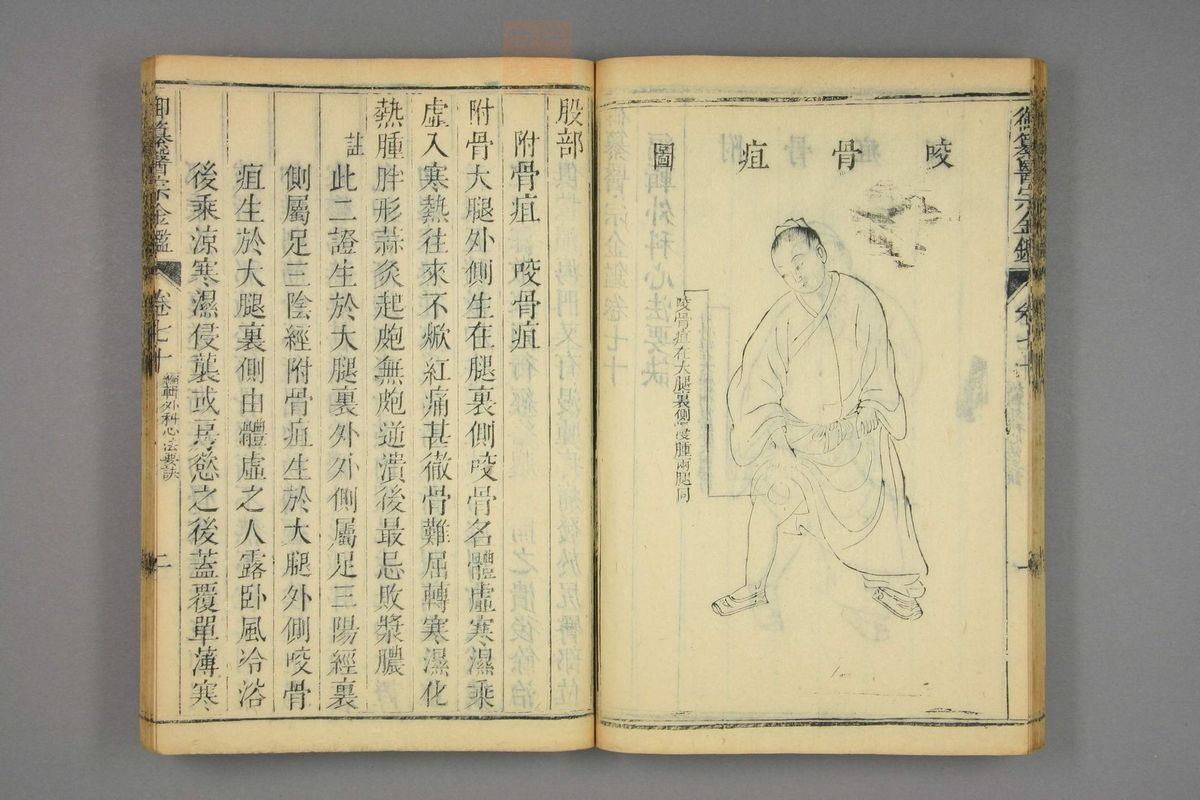 御纂醫宗金鑑
卷七十
咬骨疽圖
咬骨疽在大腿裏側漫腫兩腿同
股部
附骨疽 咬骨疽
附骨大腿外側生在腿裏側咬骨名體虛寒濕乘
虛入寒熱往來不焮紅痛甚徹骨難屈轉寒濕化
熱腫胖形蒜灸起皰無皰逆潰後最忌敗漿膿
註
此二證生於大腿裏外外側屬足三陽經裏
側屬足三陰經附骨疽生於大腿外側咬骨
疽生於大腿裏側由體虛之人露卧風冷浴
後乘涼寒濕侵襲或房慾之後蓋覆單薄寒
御纂醫宗金鑑
卷七十
編輯外科心法要訣
二